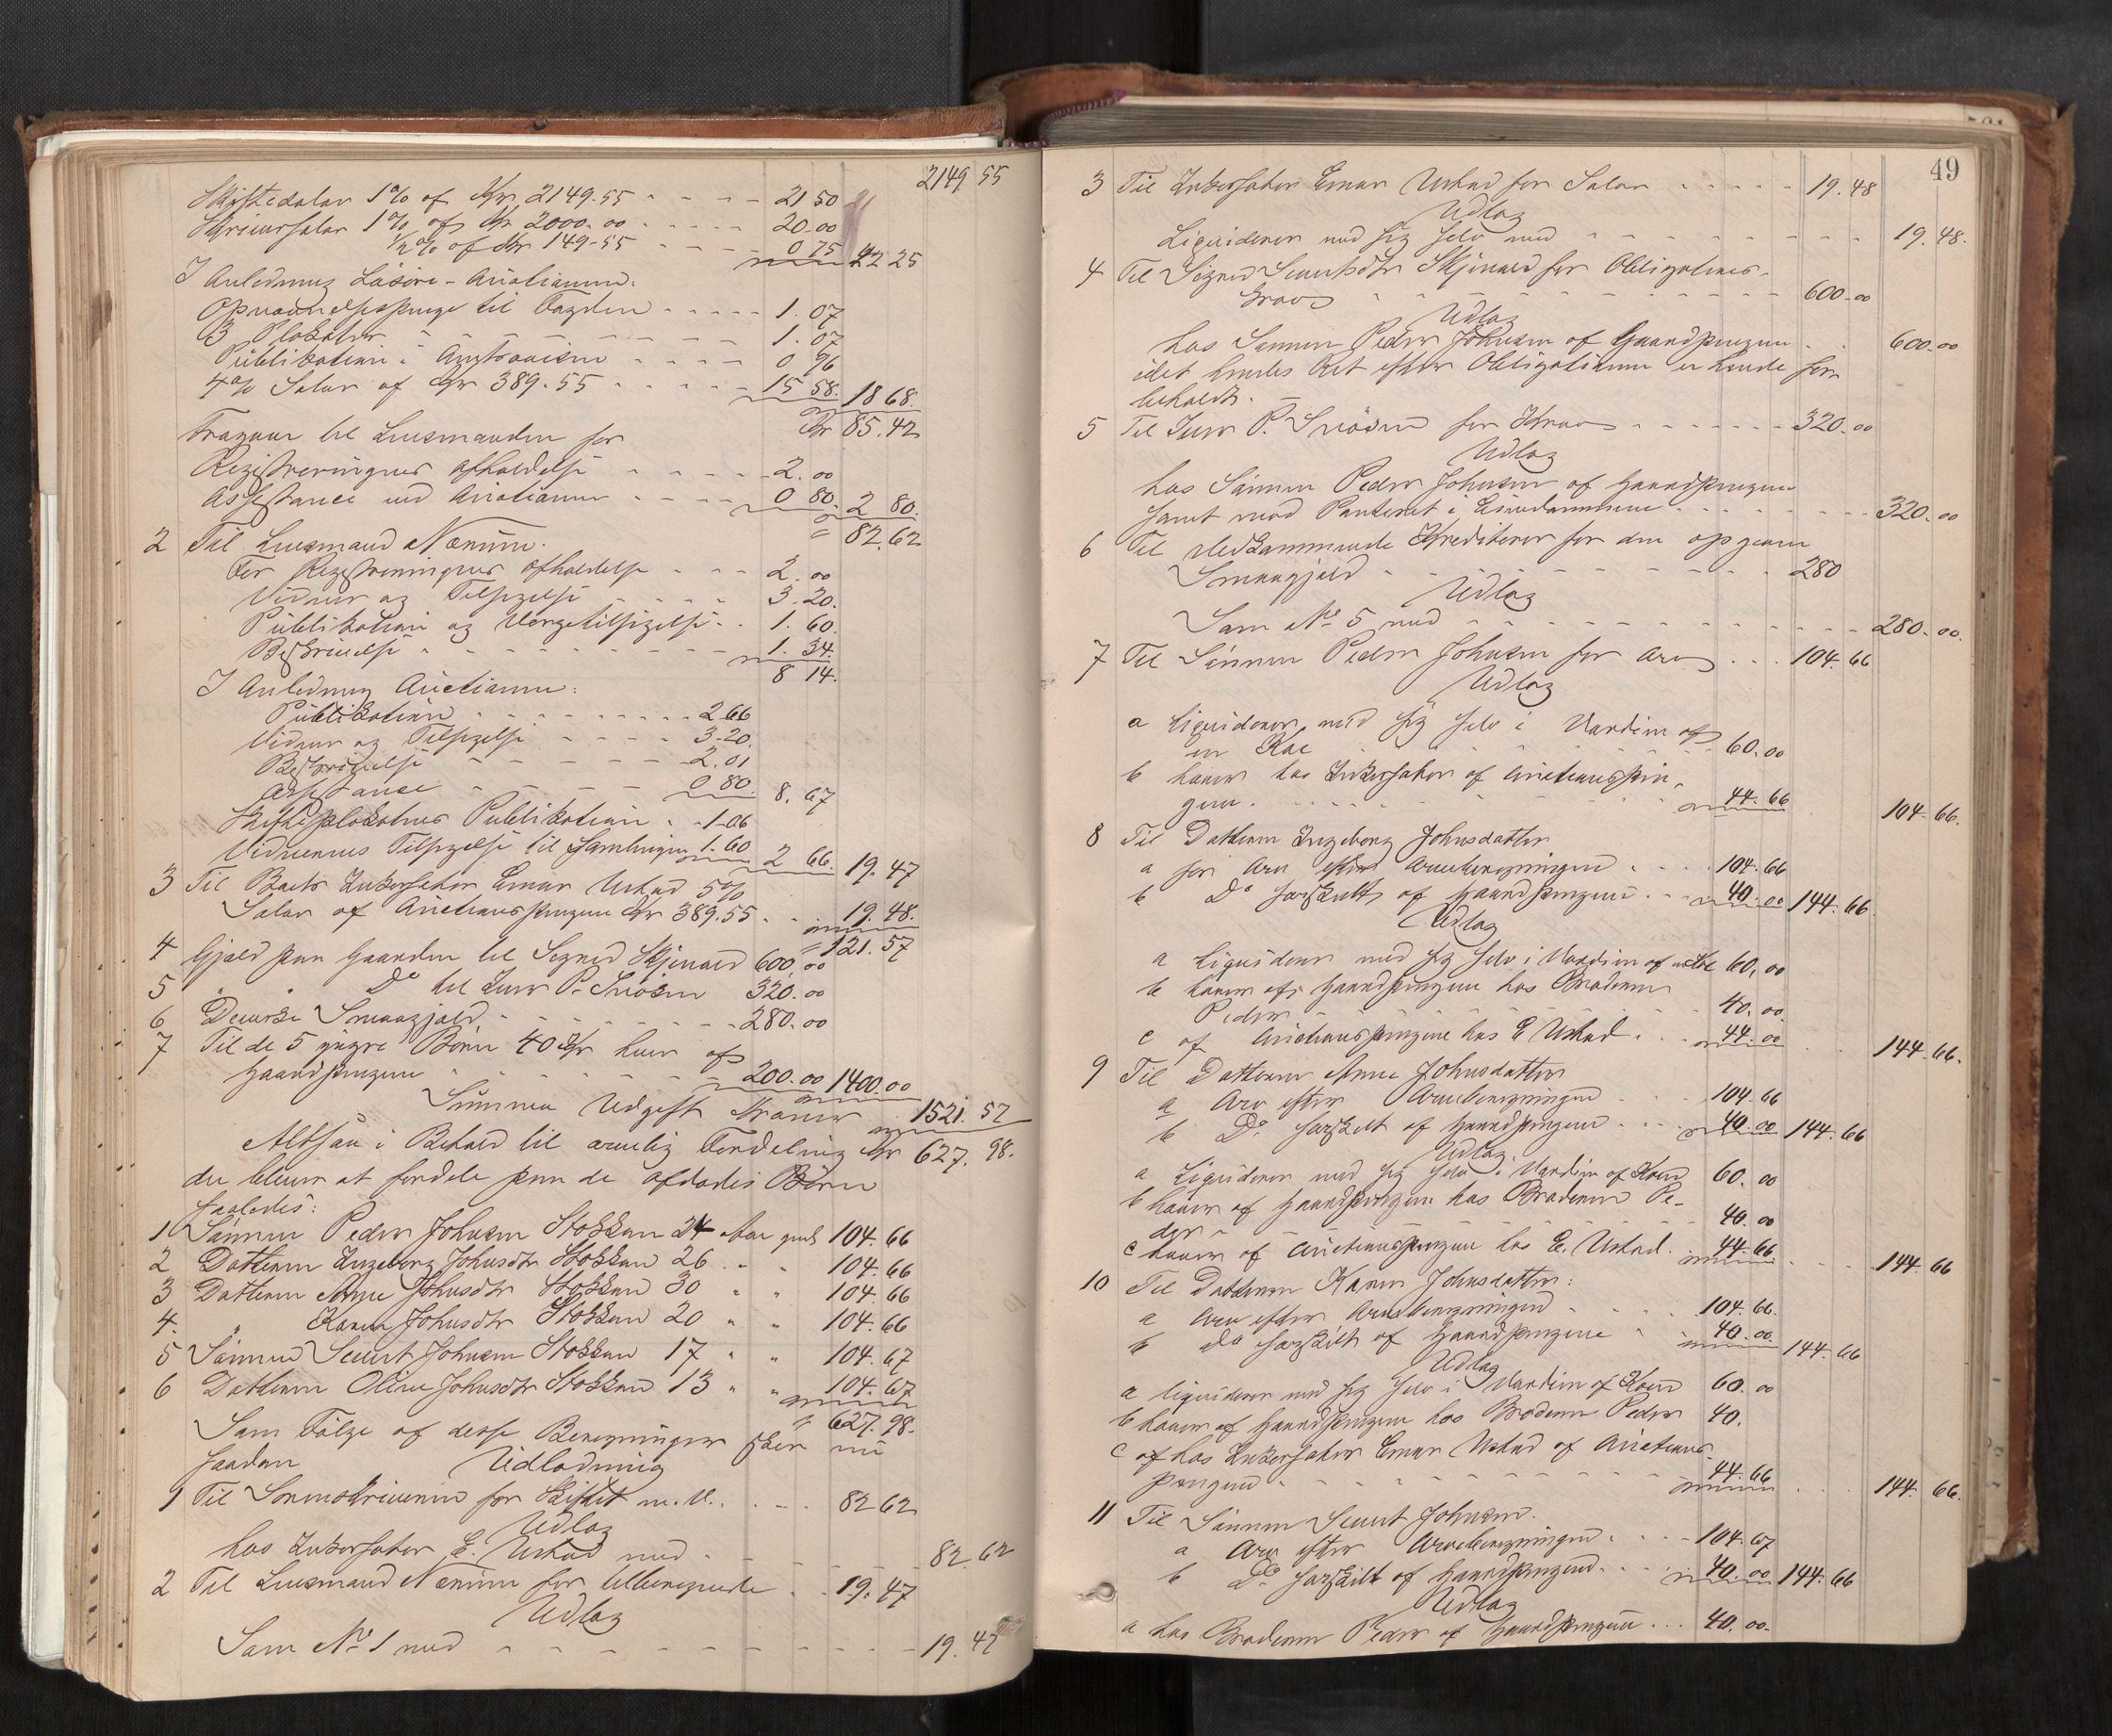 2149 55
Skiftesalær 1% af Kr 2149.55 21 50
Skriversalær 1% af Kr 2000.00 20.00
½% af Kr 149.55 0 75 22 25
I Anledning Løsøre-Auctionen:
til Fogden 1.07
3 Plakater 1.07
Publikation i Amtsavisen 0 96
4% Salær af Kr 389.55 15 58. 18 68.
Kr 85.42
Fragaar til Lensmanden for
Registreringens Afholdelse 2.00
Assistance ved Auctionen 0 80. 2 80.
" 82.62
2 Til Lensmand
For Registreringens Afholdelse 2.00
Vidner og Tilsigelse 3.20.
Publikation og Vergetilsigelse 1.60.
Beskrivelse 1.34.
8 14.
I Anledning Auctionen:
Publikation 2 66
Vidner og Tilsigelse 3.20.
Beskrivelse 2.01
Assistance 0 80. 8.67
Skifteplakatens Publikation 1-06
Vidnernes Tilsigelse til Samlingen 1.60 2 66. 19.47
3 Til Boets Inkassator Einar Ustad 5%
Salær af Auctionspengene Kr 389.55 19.48.
" 121.57
4 Gjæld paa Gaarden til Signed Skjevald 600.00
5 " " Do til Iver P. Snøen 320.00
6 Smaagjæld 280.00
7 Til de 5 yngre Børn 40 Kr hver af
Gaardpengene 200.00 1400.00
Summa Udgift Kroner 1521.57
Altsaa i Behold til arvelig Fordeling Kr 627.98.
der bliver at fordele paa de afdødes Børn
saaledes:
1 Sønnen Peder Johnsen Stokkan 24 Aar gml 104.66
2 Datteren Ingeborg Johnsdtr Stokkan 26 " " 104.66
3 Datteren Anne Johnsdtr Stokkan 30 " " 104.66
4. " Karen Johnsdtr Stokkan 20 " " 104.66
5 Sønnen Sivert Johnsen Stokkan 17 " " 104.67
6 Datteren Oline Johnsdtr Stokkan 13 " " 104.67
" 627.98.
Som Følge af disse Beregninger sker nu
saadan Udlodning
1 Til Sorenskriveren for Skiftet m.V. 82 62
Udlæg
hos Inkassator E. Ustad med 82 62
2 Til Lensmand for 19.47
Udlæg
Som No 1 med 19.47
49
3 Til Inkassator Einar Ustad for Salær 19.48
Udlæg
Liquiderer med sig selv med 19.48.
4 Til Signed Sivertsdtr Skjevald for Obligations-
krav 600.00
Udlæg
hos Sønnen Peder Johnsen af Gaardpengene 600.00
idet hendes Ret efter Obligationen er hende for-
beholdt.
5 Til Iver P. Snøen for Krav 320.00
Udlæg
hos Sønnen Peder Johnsen af Gaardpengene
samt med Panteret i Eiendommene 320.00
6 Til Vedkommende Kreditorer for den opgivne
Smaagjæld 280
Udlæg
Som No 5 med 280.00.
7 Til Sønnen Peder Johnsen for Arv 104.66
Udlæg
a Liquiderer med sig selv i Værdien af
en Ko 60.00
b hæver hos Inkassator af Auctionspen-
gene 44.66 104.66.
8 Til Datteren Ingeborg Johnsdatter
a for Arv efter Arveberegningen 104.66
b Do særskilt af Gaardpengene 40.00 144.66
Udlæg
a Liquiderer med sig selv i Værdien af en Ko 60.00
b hæver af Gaardpengene hos Broderen
Peder 40.00
c af Auctionspengene hos E Ustad 44.00 144.66.
9 Til Datteren Anne Johnsdatter
a Arv efter Arveberegningen 104.66
b Do særskilt af Gaardpengene 40.00 144.66
Udlæg
a Liquiderer med sig selv i Værdien af Koen 60.00
b hæver af Gaardpengene hos Broderen Pe-
der 40.00
c hæver af Auctionspengene hos E. Ustad 44.66. 144.66
10 Til Datteren Karen Johnsdatter:
a Arv efter Arveberegningen 104.66.
b do særskilt af Gaardpengene 40.00. 144.66
Udlæg
a liquiderer med sig selv i Værdien af Koen 60.00
b hæver af Gaardpengene hos Broderen Peder 40.
c af hos Inkassator Einar Ustad af Auctions-
pengene 44.66 144.66.
11 Til Sønnen Sivert Johnsen.
a Arv efter Arveberegningen 104.67
b Do særskilt af Gaardpengene 40.00 144.66
Udlæg
a hos Broderen Peder af Gaardpengene 40.00.